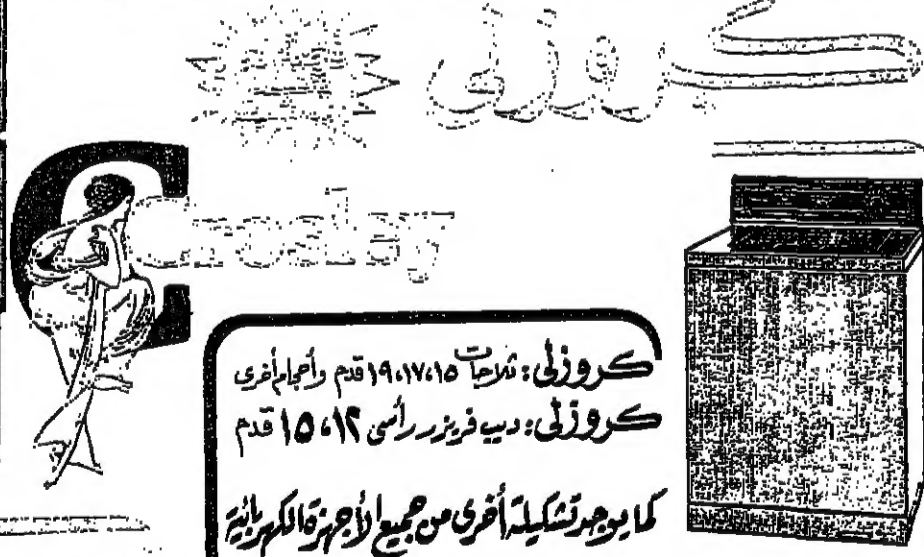 كروزلى
Crosley
كروزلى: ثلاجات ١٥،١٧،١٩ قدم وأحجام أخرى
كروزلى: ديب فريزر رأسى ١٢، ١٥ قدم
كما يوجد تشكيلة أخرى من جميع الأجهزة الكهربائية